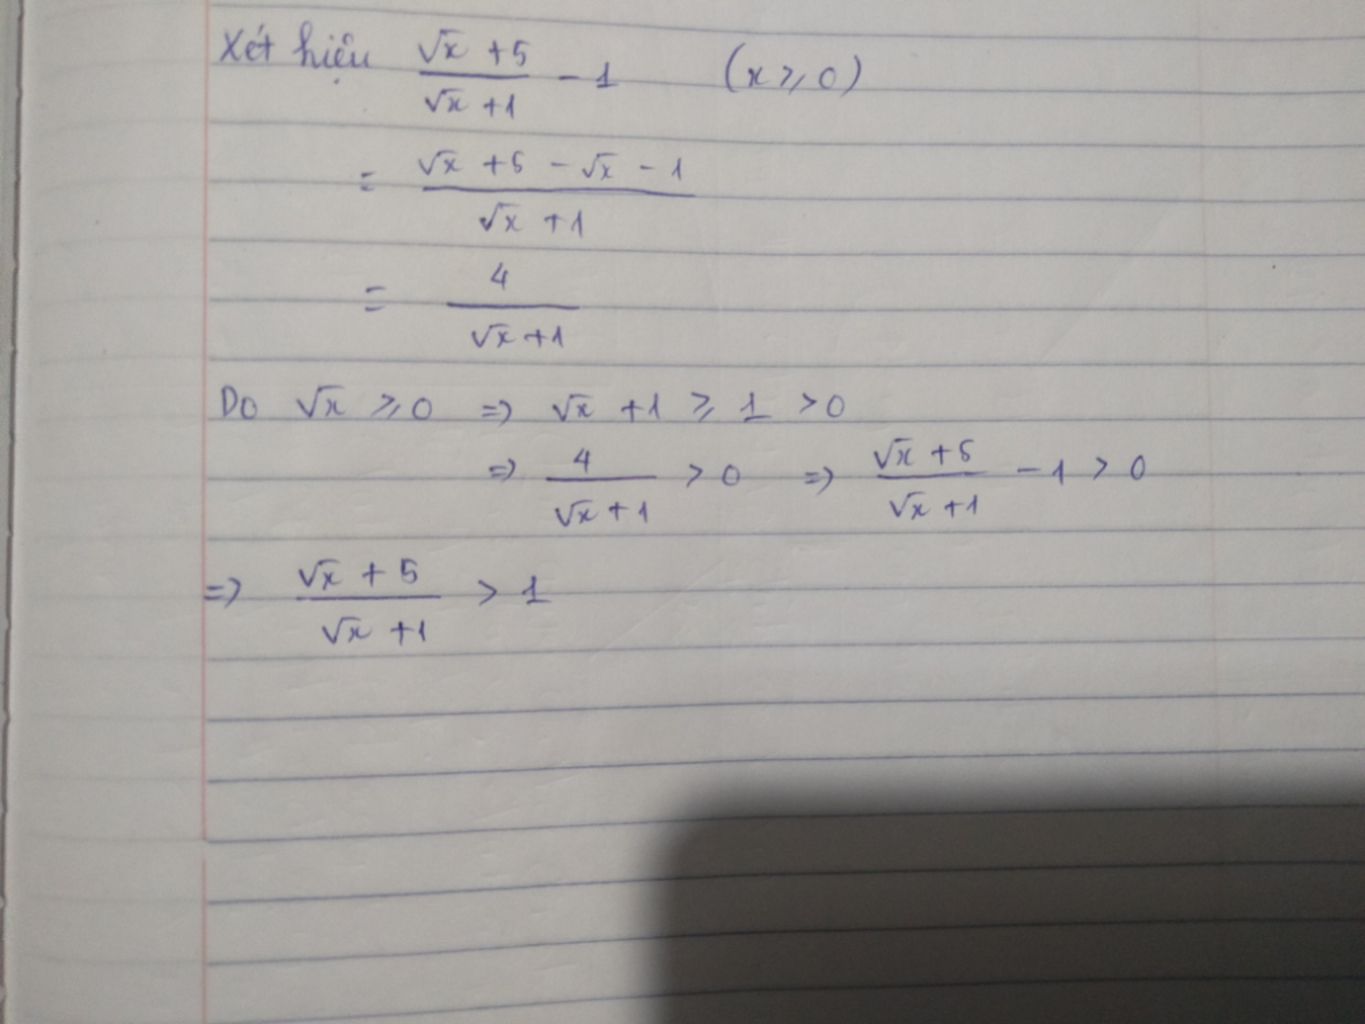 Xét hiệu (√x + 5)/(√x + 1) - 1 (x ⩾ 0)
= (√x + 5 - √x - 1)/(√x + 1)
= 4/(√x + 1)
Do √x ⩾ 0 => √x + 1 ⩾ 1 > 0
=> 4/(√x + 1) > 0 => (√x + 5)/(√x + 1) - 1 > 0
=> (√x + 5)/(√x + 1) > 1